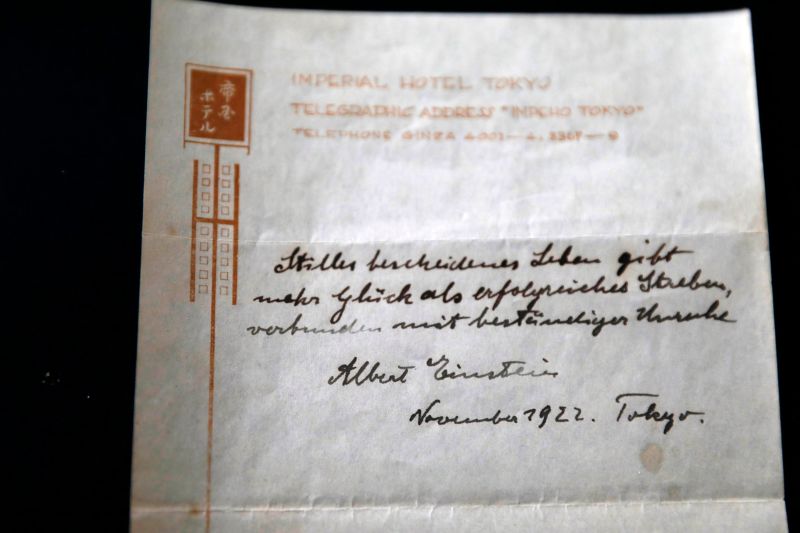 帝国
ホテル
IMPERIAL HOTEL TOKYO
TELEGRAPHIC ADDRESS "IMPEHO TOKYO"
TELEPHONE GINZA 4001—4, 2367—9
Stilles bescheidenes Leben gibt
mehr Glück als erfolgreiches Streben,
verbunden mit beständiger Unruhe
Albert Einstein
November 1922. Tokyo.